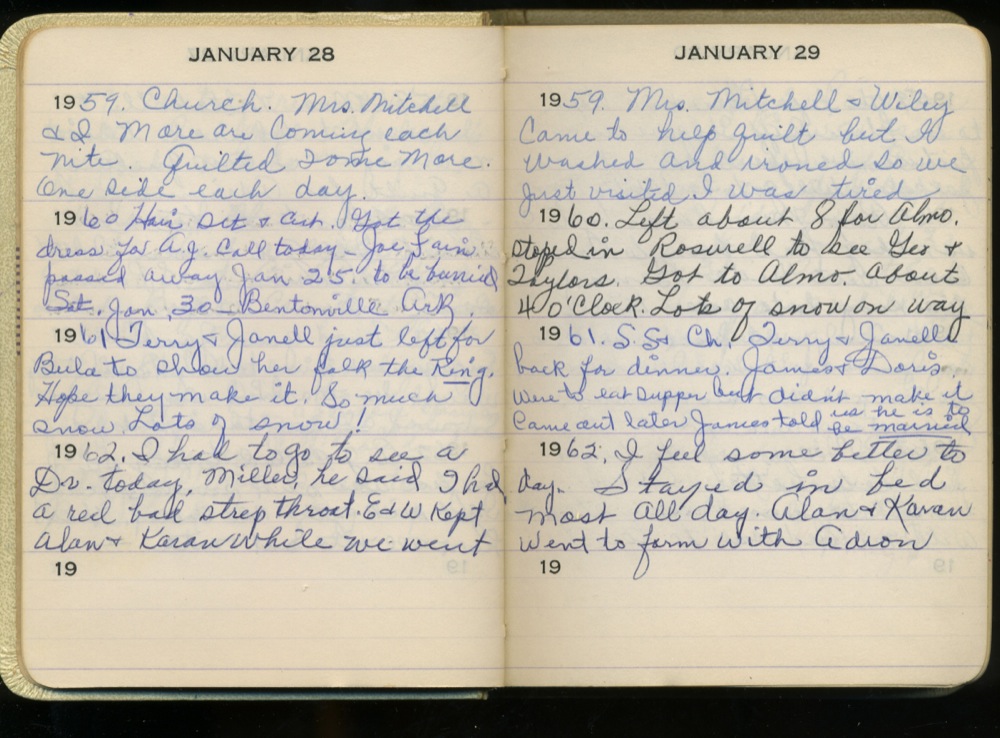 JANUARY 28
1959. Church. Mrs. Mitchell
& I More are Coming each
nite. Quilted some More.
One side each day.
1960 Hair Set & cut. Got the
dress for A.J. Call today - Joe Fain
passed away Jan 25. to be burried
Sat. Jan, 30 - Bentonville Ark.
1961 Terry & Janell just left for
Bula to show her folk the Ring.
Hope they make it. So much
snow. Lots of snow!
1962. I had to go to see a
Dr. today, Miller, he said I had
a real bad strep throat. E & W Kept
Alan & Karan while we went
19
JANUARY 29
1959. Mrs. Mitchell & Wiley
Came to help quilt but I
washed and ironed so we
just visited I was tired
1960. Left about 8 for Almo.
stoped in Roswell to see Geo &
Taylors. Got to Almo. About
4 O'Clock. Lots of snow on way
1961. S.S & Ch. Terry & Janell
back for dinner. James & Doris
were to eat supper but didn't make it
Came out later James told us he is to be married
1962, I feel some better to
day. Stayed in bed
most all day. Alan & Karan
Went to farm with Adron
19